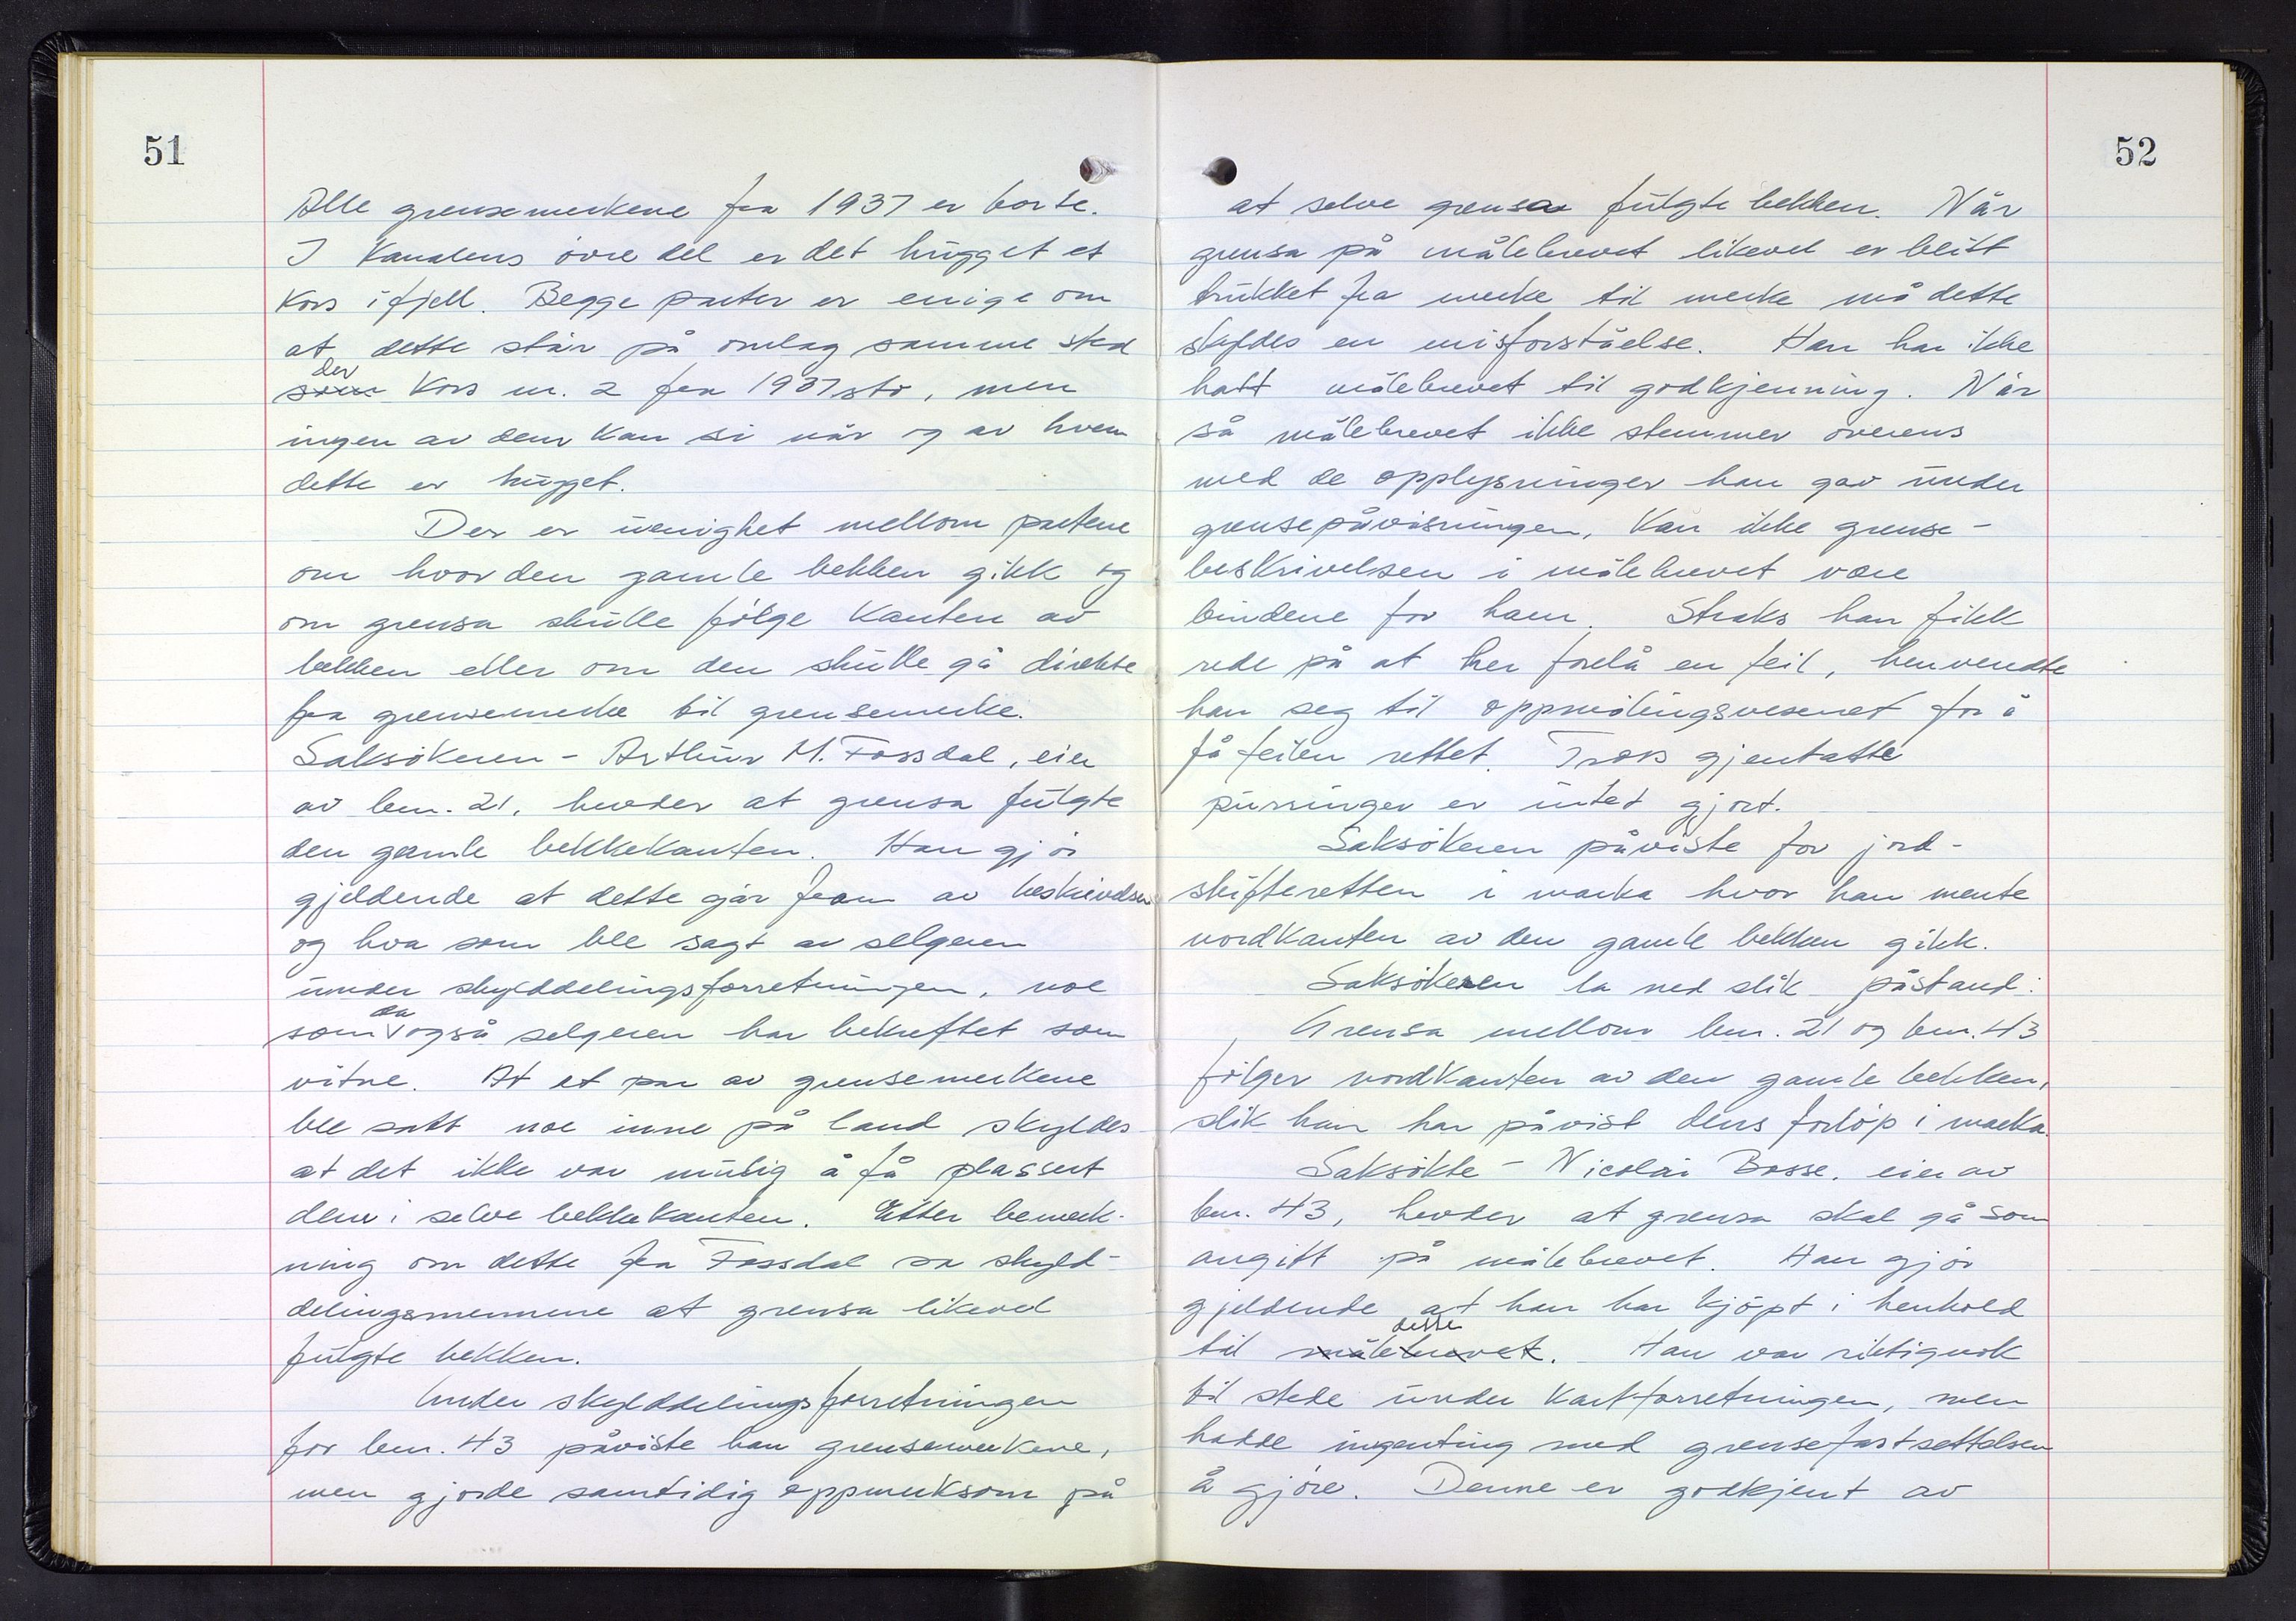 51
Alle grensemerkene fra 1937 er borte.
I Kanalens övre del er det hugget et
Kors i fjell. Begge parter er enige om
at dette står på omlag samme sted
der
som Kors nr. 2 fra 1937 sto, men
ingen av dem kan si når og av hvem
dette er hugget.
Der er uenighet mellom partene
om hvor den gamle bekken gikk og
om grensa skulle fölge Kanten av
bekken eller om den skulle gå direkte
fra grensemerke til grensemerke.
Saksökeren - Arthur M. Fossdal, eier
av bnr. 21, hevder at grensa fulgte
den gamle bekkekanten. Han gjör
gjeldende at dette går fram av beskrivelsen
og hva som ble sagt av selgeren
under skylddelingsforretningen, noe
da
som også selgeren har bekreftet som
vitne. At et par av grensemerkene
ble satt noe inne på land skyldes
at det ikke var mulig å få plassert
dem i selve bekkekanten. Etter bemerk-
ning om dette fra Fossdal sa skyld-
delingsmennene at grensa likevel
fulgte bekken.
Under skylddelingsforretningen
for bnr. 43 påviste han grensemerkene,
men gjorde samtidig oppmerksom på
52
at selve grensa fulgte bekken. Når
grensa på målebrevet likevel er blitt
trukket fra merke til merke må dette
skyldes en misforståelse. Han har ikke
hatt målebrevet til godkjenning. Når
så målebrevet ikke stemmer overens
med de opplysninger han gav under
grensepåvisningen, Kan ikke grense-
beskrivelsen i målebrevet være
bindene for ham. Straks han fikk
rede på at her forelå en feil, henvendte
han seg til oppmålingsvesenet for å
få feilen rettet. Tross gjentatte
purringer er intet gjort.
Saksökeren påviste for jord-
skifteretten i marka hvor han mente
nordkanten av den gamle bekken gikk.
Saksökeren la ned slik påstand:
Grensa mellom bnr. 21 og bnr. 43
fölger nordkanten av den gamle bekken,
slik han har påvist dens forlöp i marka.
Saksökte - Nicolai Bosse, eier av
bnr. 43, hevder at grensa skal gå som
angitt på målebrevet. Han gjör
gjeldende at han har kjöpt i henhold
dette
til målebrevet. Han var riktignok
til stede under Kartforretningen, men
hadde ingenting med grensefastsettelsen
å gjöre. Denne er godkjent av